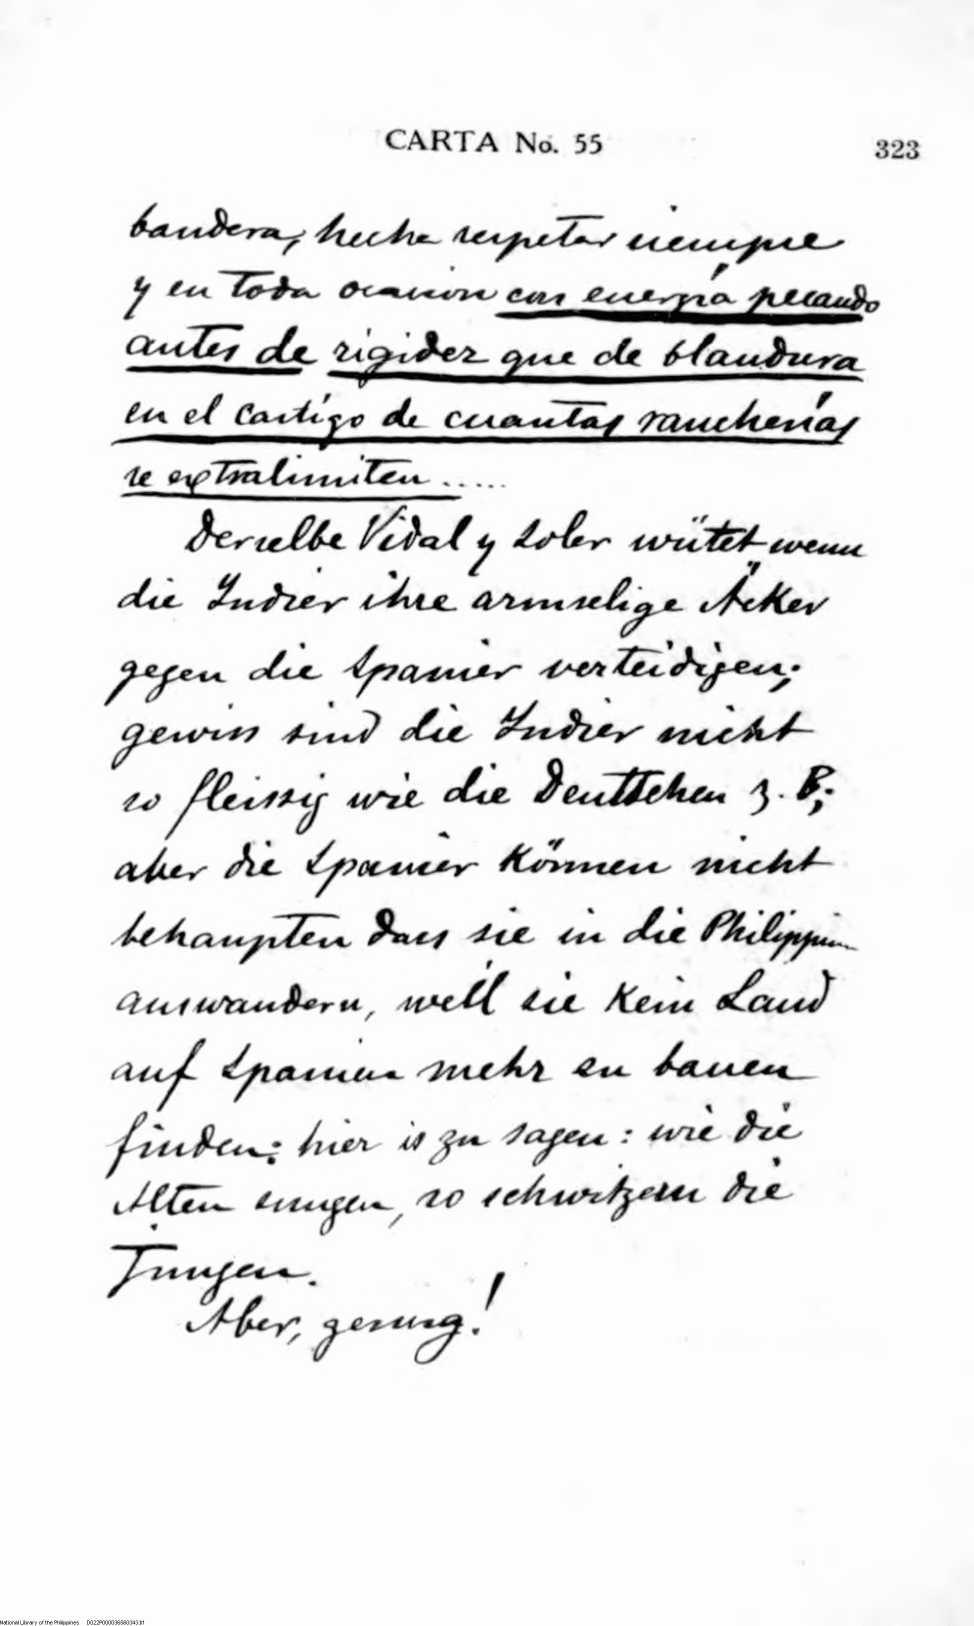 CARTA No. 55
323
bandera, hecha respetar siempre
y en toda ocasion con energía pecando
antes de rigidez que de blandura
en el castigo de cuantas rancherías
se extralimiten.....
Derselbe Vidal y Soler wütet wenn
die Indier ihre armselige Äcker
gegen die Spanier verteidigen;
gewiss sind die Indier nicht
so fleissig wie die Deuttschen z. B;
aber die Spanier können nicht
behaupten dass sie in die Philippinen
auswandern, weil sie kein Land
auf Spanien mehr zu bauen
finden: hier is zu sagen: wie die
Alten sungen, so schwitzern die
Jungen.
Aber, genug!
National Library of the Philippines